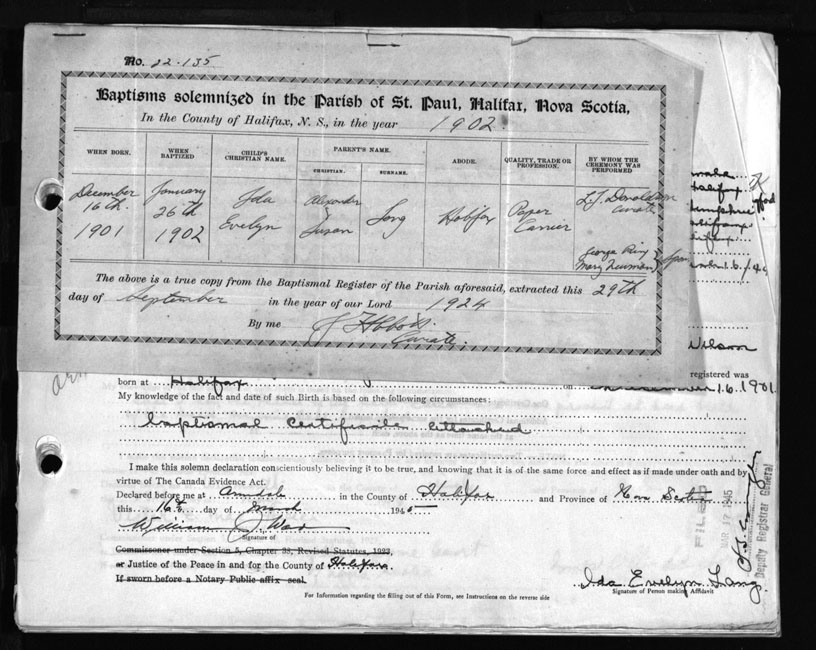 No. 22.135
Baptisms solemnized in the Parish of St. Paul, Halifax, Nova Scotia,
In the County of Halifax, N. S., in the year 1902.
WHEN BORN. WHEN BAPTIZED CHILD'S CHRISTIAN NAME. PARENT'S NAME. ABODE. QUALITY, TRADE OR PROFESSION. BY WHOM THE CEREMONY WAS PERFORMED
CHRISTIAN. SURNAME.
December January Ida Alexander L.J. Donaldson
16th 26th & Long Halifax Paper Curate
1901 1902 Evelyn Susan Carrier
George King
Mary Newman
The above is a true copy from the Baptismal Register of the Parish aforesaid, extracted this 29th
day of September in the year of our Lord 1924
By me
Curate.
registered was
born at Halifax on December 16, 1901.
My knowledge of the fact and date of such Birth is based on the following circumstances:
baptismal certificate attached
I make this solemn declaration conscientiously believing it to be true, and knowing that it is of the same force and effect as if made under oath and by
virtue of The Canada Evidence Act.
Declared before me at Armdale in the County of Halifax and Province of Nova Scotia
this 16th day of March 1945
William J. Wao
Signature of
Commissioner under Section 5, Chapter 38, Revised Statutes, 1923,
or Justice of the Peace in and for the County of Halifax.
If sworn before a Notary Public affix seal.
Ida Evelyn Long.
Signature of Person making Affidavit
For Information regarding the filling out of this Form, see Instructions on the reverse side
FILED
MAR 17 1945
Deputy Registrar General